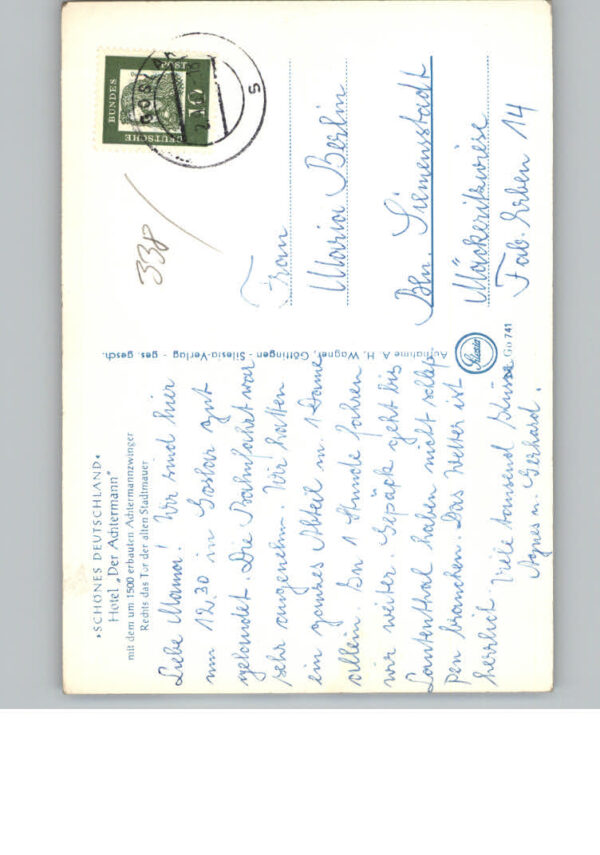 »SCHÖNES DEUTSCHLAND«
Hotel „Der Achtermann“
mit dem um 1500 erbauten Achtermannzwinger
Rechts das Tor der alten Stadtmauer
Liebe Mama! Wir sind hier
um 12.30 in Goslar gut
gelandet. Die Bahnfahrt war
sehr angenehm. Wir hatten
ein ganzes Abteil m. 1 Dame
allein. In 1 Stunde fahren
wir weiter. Gepäck geht bis
Lautenthal haben nicht schlep-
pen brauchen. Das Wetter ist
herrlich. Viele tausend Küsse
Agnes u. Gerhard.
Aufnahme A. H. Wagner, Göttingen - Silesia-Verlag - ges. gesch.
Silesia
Go 741
DEUTSCHE
BUNDES
POST
10
GOSLAR
s
338
Frau
Maria Berlin
Bln. Siemensstadt
Mäckeritzwiese
Fab. Erben 14